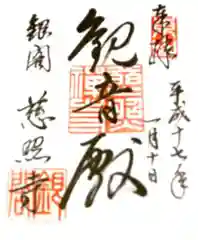 奉拝
平成十七年
一月十日
観音殿
銀閣
慈照寺